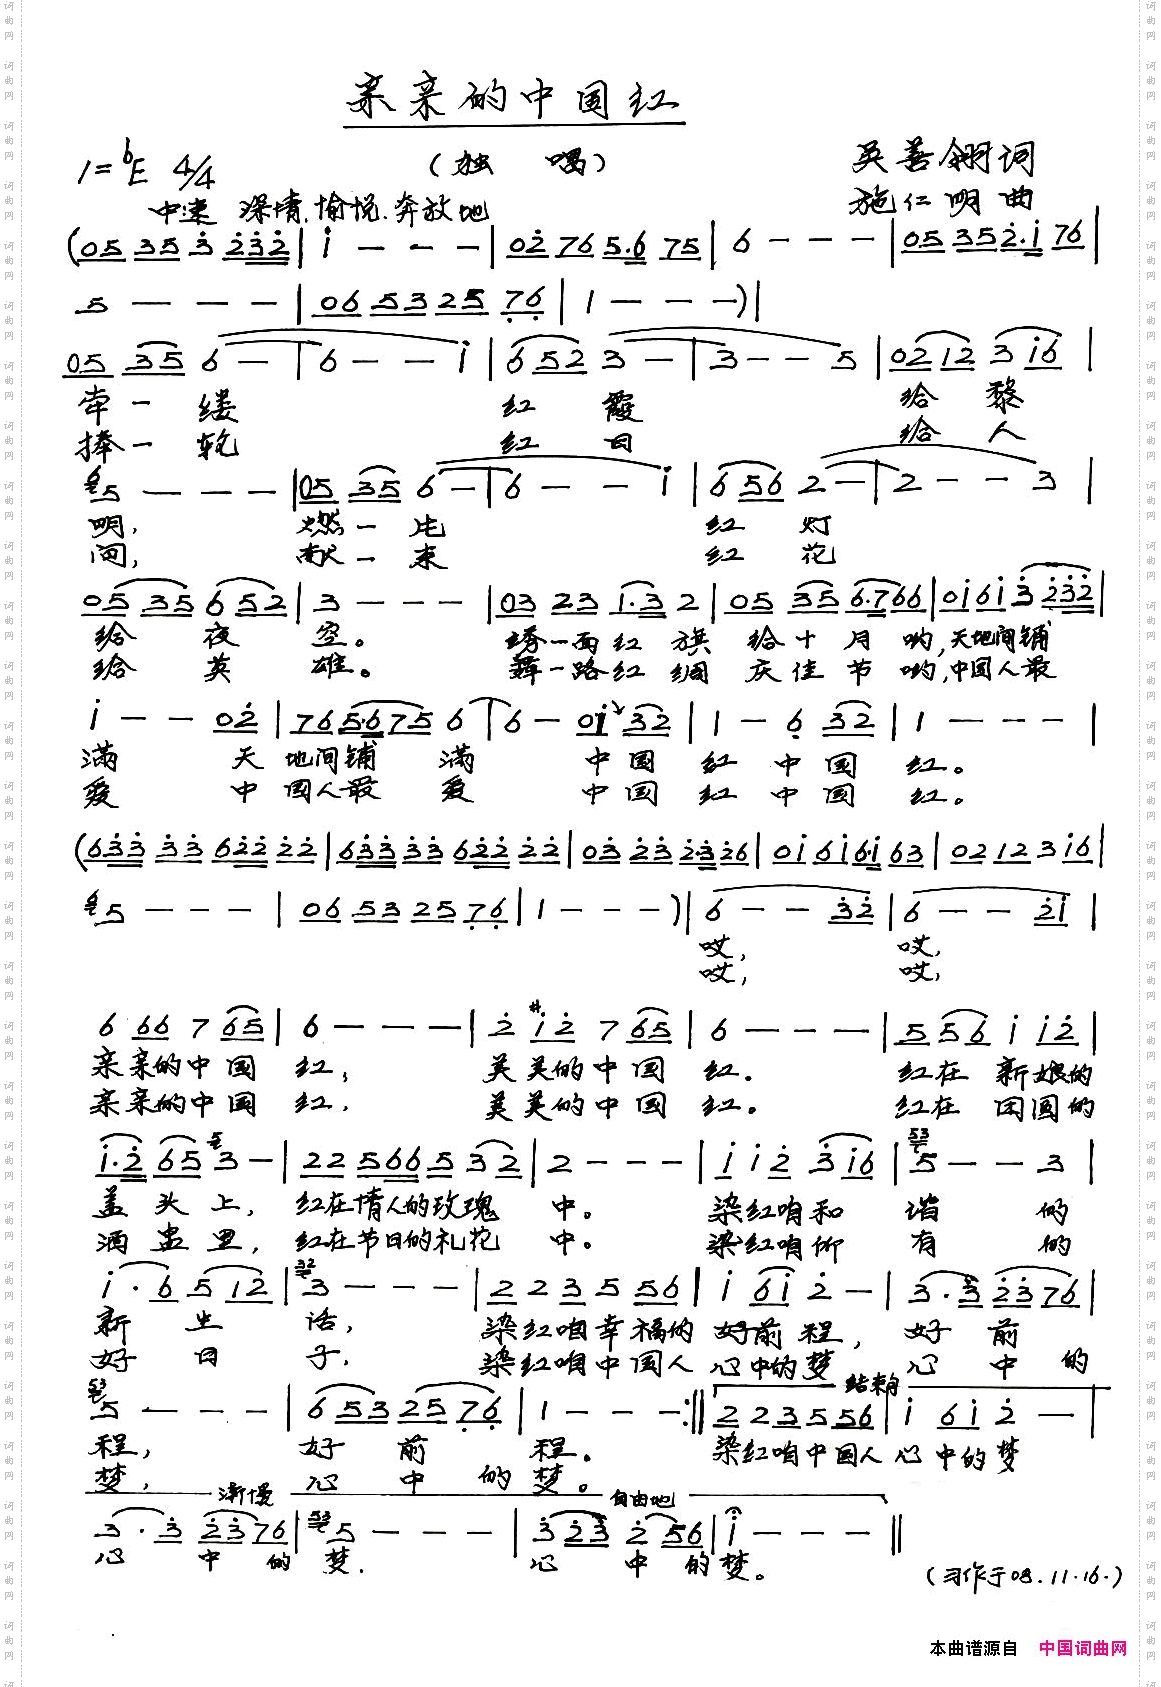 亲亲的中国红
（独 唱）
1=♭E 4/4
中速 深情.愉悦.奔放地
英善翎词
施仁明曲
(05 35 3 232 | i - - - | 02 76 5·6 75 | 6 - - - | 05 352·i 76 |
5 - - - | 06 53 25 76 | 1 - - -)|
05 35 6 - | 6 - - i | 6 52 3 - | 3 - - 5 | 02 12 3 i6 |
牵一缕 红霞 给黎
捧一轮 红日 给人
5 - - - | 05 35 6 - | 6 - - i | 6 56 2 - | 2 - - 3 |
明, 燃一片 红灯
间, 献一束 红花
05 35 6 52 | 3 - - - | 03 23 1·3 2 | 05 35 6·7 66 | 0i 6i 3 232 |
给夜空。 绣一面红旗给十月哟,天地间铺
给英雄。 舞一路红绸庆佳节哟,中国人最
i - - 02 | 76 5·6 75 6 | 6 - 0i 32 | 1 - 6 32 | 1 - - - |
满 天地间铺满 中国红中国红。
爱 中国人最爱 中国红中国红。
(633 33 622 22 | 633 33 622 22 | 03 23 2·3 26 | 0i 6i 6·i 63 | 02 12 3 i6 |
5 - - - | 06 53 25 76 | 1 - - -)| 6 - - 32 | 6 - - 2i |
哎, 哎,
哎, 哎,
6 66 7 65 | 6 - - - | 2 #i2 7 65 | 6 - - - | 5 56 i i2 |
亲亲的中国红, 美美的中国红. 红在新娘的
亲亲的中国红. 美美的中国红. 红在团圆的
i·2 65 3 - | 22 566 5 32 | 2 - - - | i i2 3 i6 | 5 - - 3 |
盖头上, 红在情人的玫瑰中。 染红咱和谐的
酒盅里, 红在节日的礼花中。 染红咱所有的
i·6 5 12 | 3 - - - | 2 2 3 5 56 | i 6i 2 - | 3·3 23 76 |
新生活, 染红咱幸福的好前程, 好前
好日子, 染红咱中国人心中的梦 心中的
5 - - - | 6 53 25 76 | 1 - - - :|| 2 2 3 5 56 | i 6i 2 - |
结束句
程, 好前程。 染红咱中国人心中的梦
梦, 心中的梦。
渐慢 自由地
3·3 23 76 | 5 - - - | 3 23 2 56 | i - - - ||
心中的梦. 心中的梦。
(习作于08.11.16.)
本曲谱源自 中国词曲网